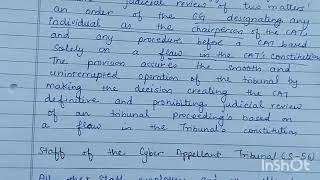 judicial review of two matters:
an order of the CG designating any
individual as the chairperson of the CAT
and any procedure before a CAT based
solely on a flaw in the CAT's constitution
The provision accures the smooth and
uninterrupted operation of the tribunal by
making the decision creating the CAT
definitive and prohibiting judicial review
of an tribunal proceeding's based on
a flaw in the Tribunal's constitution
Staff of the Cyber Appellant Tribunal (S-56)
All other staff
InShot